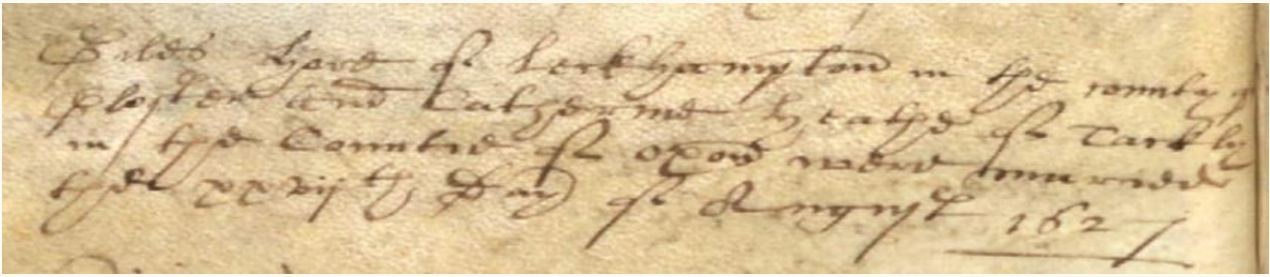 Giles hore of Leckhampton in the county of
Gloster and Catherine heathe of Tackly
in the Countie of oxon were married
the xxvijth day of August 1627